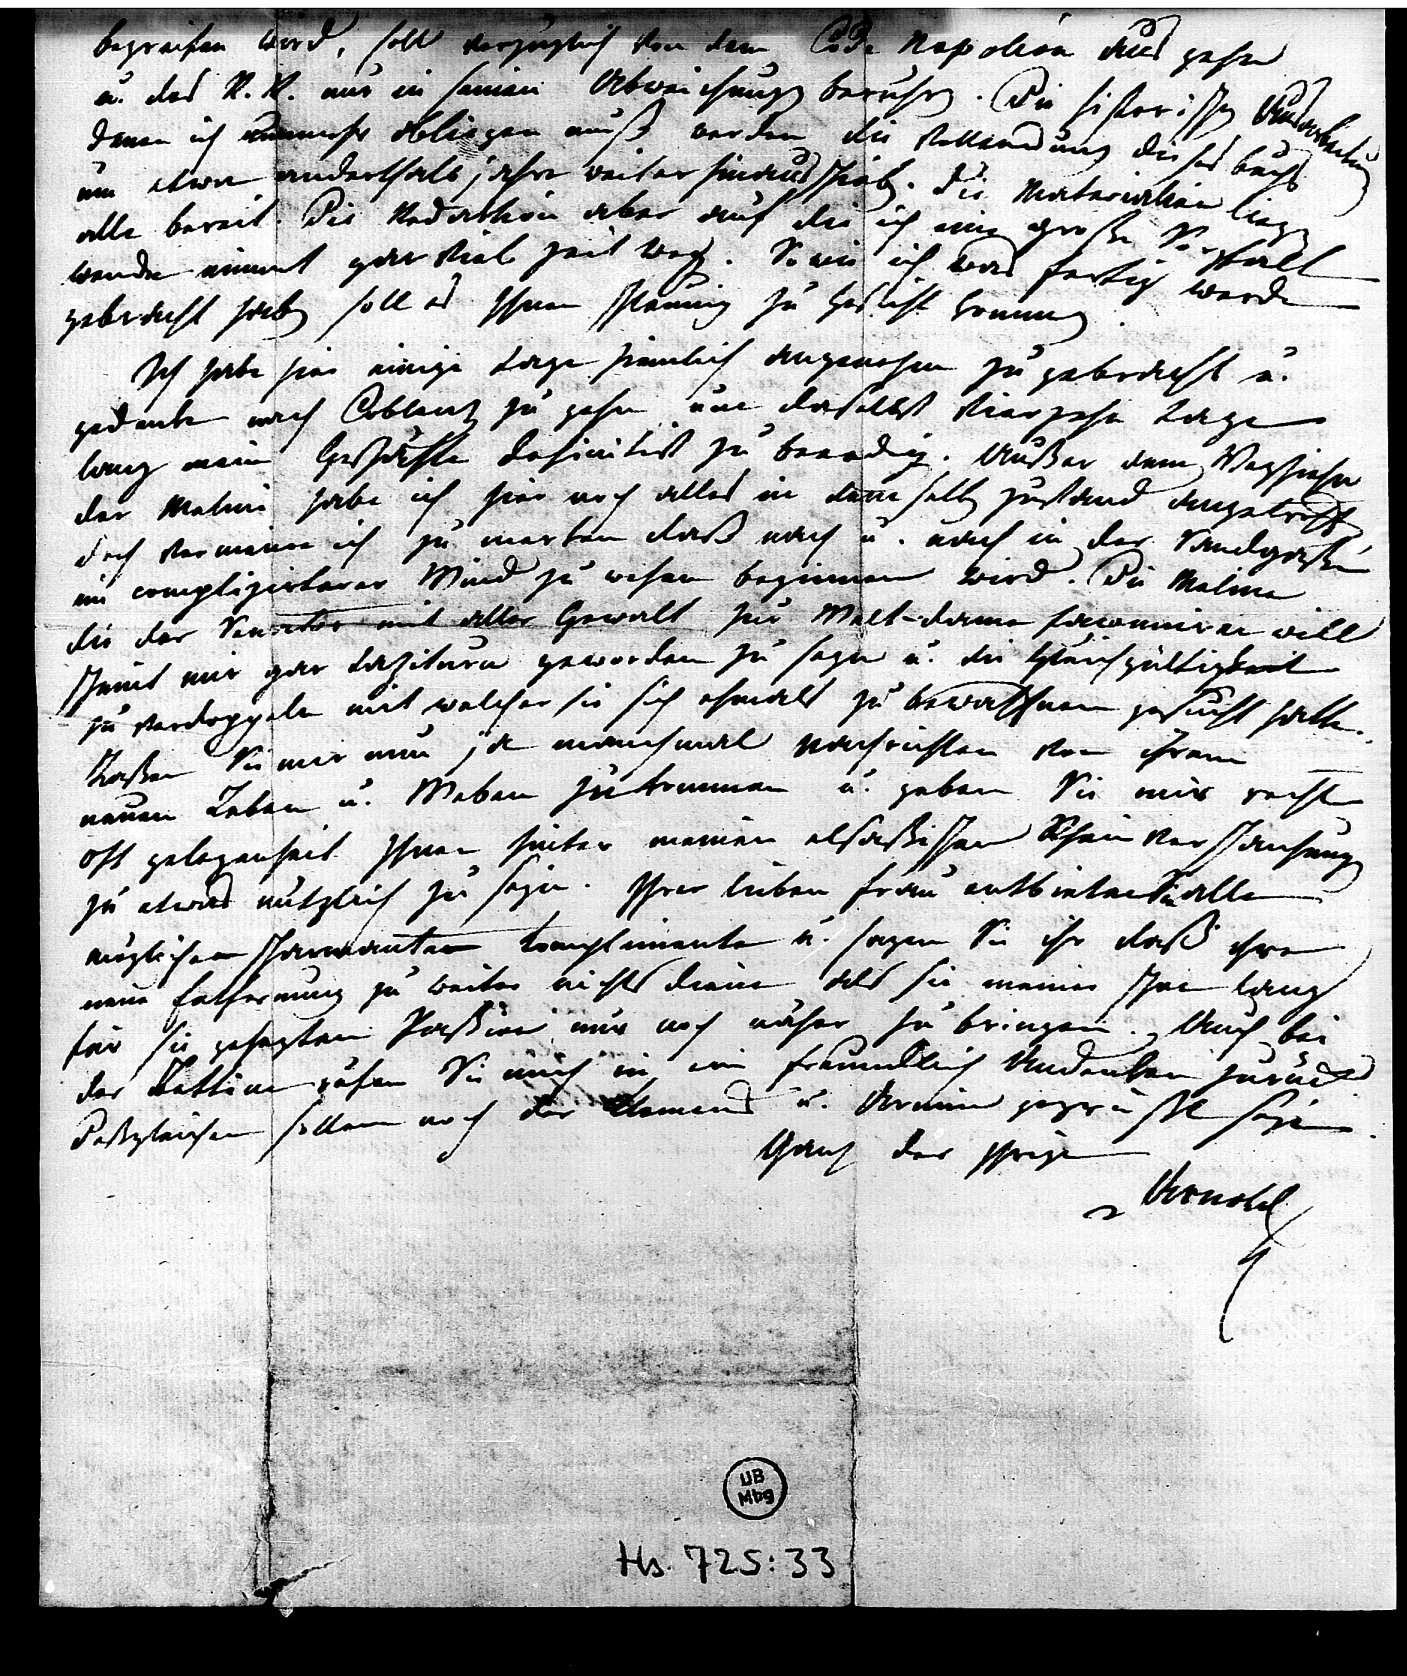 begreifen wird, soll vorzüglich von dem Code Napoléon aus gehen
u. das R. R. nur in seinen Abweichung berühren. Die historischen Ausarbeitung
denen ich nunmehr obliegen muß werden die Vollendung dieses buchs
um etwa anderthalb jahre weiter hinaus schieben. Die Materialien liegen
alle bereit. Die Redaktion aber auf die ich eine große Sorgfalt
wende nimmt gar viel zeit weg. So wie ich was fertig werde
gebracht haben soll es Ihnen schleunig zu Gesicht kommen.
Ich habe hier einige tage ziemlich angenehm zu gebracht u.
gedenke nach Coblenz zu gehen um daselbst vierzehn tage
lang mein Geschäfte definitiv zu beendigen. Außer dem Wegziehn
der Meline habe ich hier noch alles in demselben zustand angetroffen
doch vermeine ich zu merken daß nach u. nach in der Sandgaße
ein complizirterer Wind zu wehen beginnen wird. Die Meline
die der Senator mit aller Gewalt zur Welt-dame façonniren will
scheint mir gar taziturn geworden zu seyn u. die Gleichgültigkeit
zu verdoppeln mit welcher sie sich ehmals zu bewaffnen gesucht hatte.
Laßen Sie mir nun ja manchmal nachrichten von ihrem
neuen Leben u. Weben zukommen u. geben Sie mir recht
oft gelegenheit Ihnen hinter meinen elsaßischen Rhein Verschanzung
zu etwas nützlich zu seyn. Ihrer lieben frau entbieten Sie alle
möglichen scharmanten Complimente u. sagen Sie ihr daß ihre
neue Entfernung zu weiter nichts diene als sie meiner schon lang
für sie gehegten Paßion nur noch näher zu bringen. Auch bei
der Bettine rufen Sie mich in ein freundlich Andenken zurück
Deßgleichen sollen noch der Clemens u. Arnim gegrüßt seyn.
Ganz der Ihrige
Arnold
UB
Mbg
Hs. 725:33